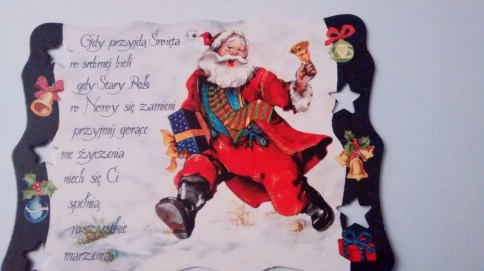 Gdy przyjdą Święta
w srebrnej bieli
gdy Stary Rok
w Nowy się zamieni
przyjmij gorące
me życzenia
niech się Ci
spełnią
wszystkie
marzenia